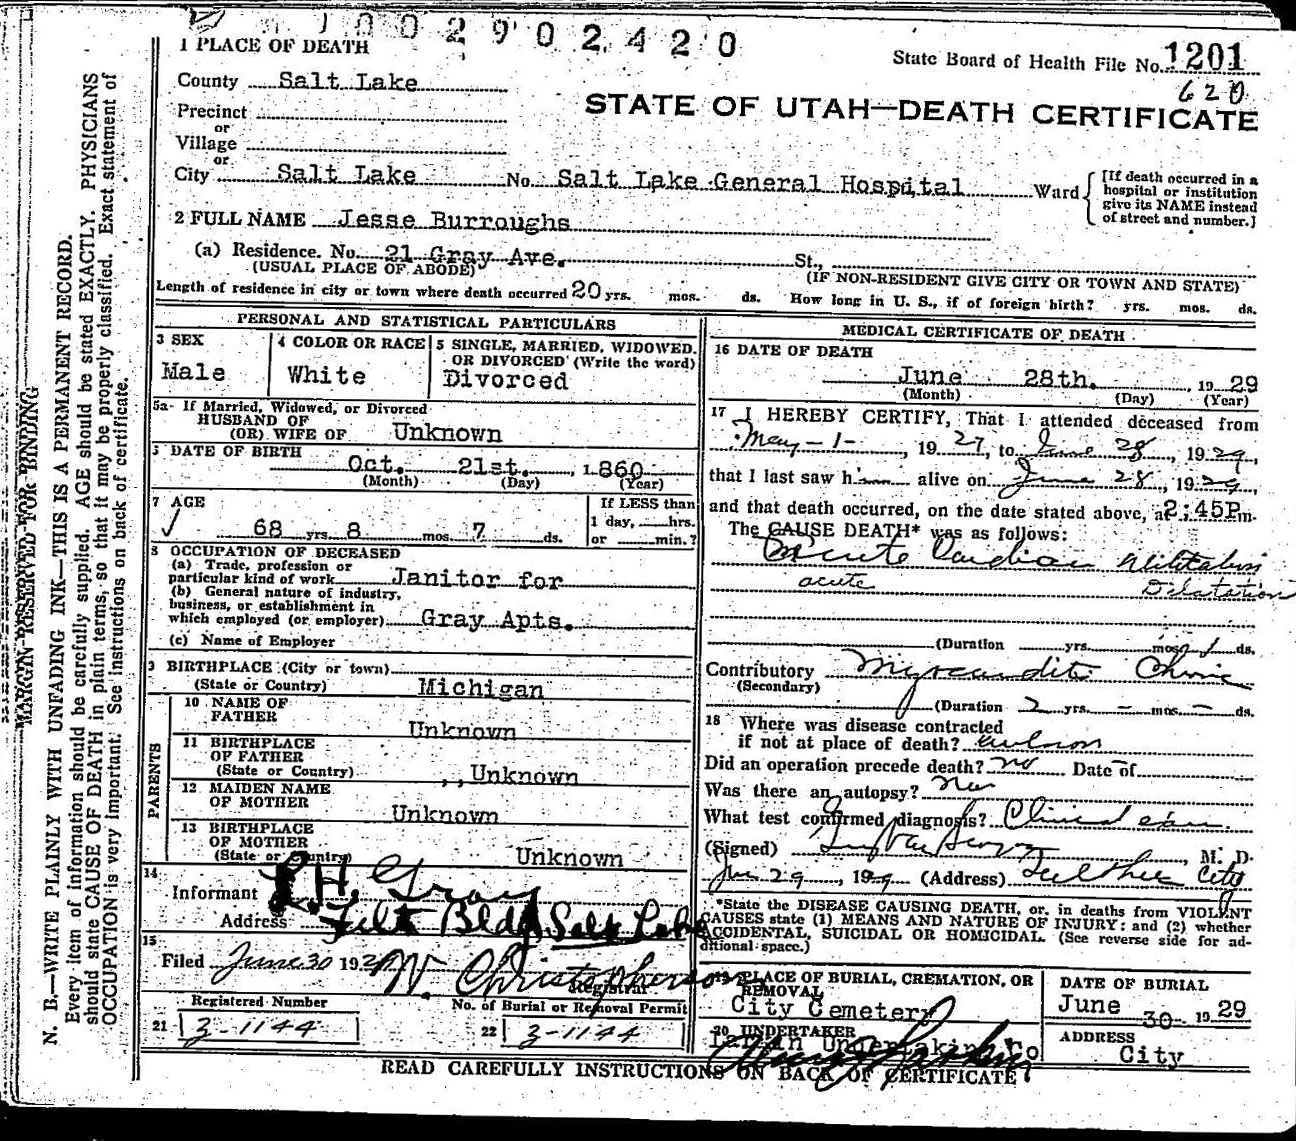 1 0 0 2 9 0 2 4 2 0
1 PLACE OF DEATH
State Board of Health File No. 1201
620
County Salt Lake
STATE OF UTAH—DEATH CERTIFICATE
Precinct
or
Village
or
City Salt Lake No. Salt Lake General Hospital Ward
[If death occurred in a hospital or institution give its NAME instead of street and number.]
2 FULL NAME Jesse Burroughs
(a) Residence. No. 21 Gray Ave. St.,
(USUAL PLACE OF ABODE) (IF NON-RESIDENT GIVE CITY OR TOWN AND STATE)
Length of residence in city or town where death occurred 20 yrs. mos. ds. How long in U. S., if of foreign birth? yrs. mos. ds.
PERSONAL AND STATISTICAL PARTICULARS
3 SEX
Male
4 COLOR OR RACE
White
5 SINGLE, MARRIED, WIDOWED, OR DIVORCED (Write the word)
Divorced
5a If Married, Widowed, or Divorced
HUSBAND OF
(OR) WIFE OF Unknown
DATE OF BIRTH
Oct. 21st. , 1860
(Month) (Day) (Year)
7 AGE
68 yrs. 8 mos. 7 ds.
If LESS than
1 day, hrs.
or min.?
8 OCCUPATION OF DECEASED
(a) Trade, profession or
particular kind of work Janitor for
(b) General nature of industry,
business, or establishment in
which employed (or employer) Gray Apts.
(c) Name of Employer
9 BIRTHPLACE (City or town)
(State or Country) Michigan
PARENTS
10 NAME OF
FATHER Unknown
11 BIRTHPLACE
OF FATHER
(State or Country) Unknown
12 MAIDEN NAME
OF MOTHER Unknown
13 BIRTHPLACE
OF MOTHER
(State or Country) Unknown
14
Informant L.H. Gray
Address Felt Bldg Salt Lake
15
Filed June 30 192 W. Christopherson
Registrar
Registered Number
21 3-1144
No. of Burial or Removal Permit
22 3-1144
MEDICAL CERTIFICATE OF DEATH
16 DATE OF DEATH
June 28th. , 1929
(Month) (Day) (Year)
17 I HEREBY CERTIFY, That I attended deceased from
May-1- , 1927, to June 28, 1929,
that I last saw him alive on June 28, 1929,
and that death occurred, on the date stated above, at 2:45P m.
The CAUSE DEATH* was as follows:
Acute Cardiac Dilatation
acute Dilatation
(Duration yrs. mos. 1 ds.
Contributory Myocarditis Chronic
(Secondary)
(Duration 2 yrs. - mos. - ds.
18 Where was disease contracted
if not at place of death?
Did an operation precede death? no Date of
Was there an autopsy? no
What test confirmed diagnosis? Clinical exam.
(Signed) , M. D.
June 29, 1929 (Address) City
*State the DISEASE CAUSING DEATH, or, in deaths from VIOLENT
CAUSES state (1) MEANS AND NATURE OF INJURY; and (2) whether
ACCIDENTAL, SUICIDAL OR HOMICIDAL. (See reverse side for ad-
ditional space.)
19 PLACE OF BURIAL, CREMATION, OR
REMOVAL
City Cemetery
DATE OF BURIAL
June 30 1929
20 UNDERTAKER
Larkin Undertaking Co
ADDRESS
City
READ CAREFULLY INSTRUCTIONS ON BACK OF CERTIFICATE
MARGIN RESERVED FOR BINDING
N. B.—WRITE PLAINLY WITH UNFADING INK—THIS IS A PERMANENT RECORD.
Every item of information should be carefully supplied. AGE should be stated EXACTLY. PHYSICIANS
should state CAUSE OF DEATH in plain terms, so that it may be properly classified. Exact statement of
OCCUPATION is very important. See instructions on back of certificate.